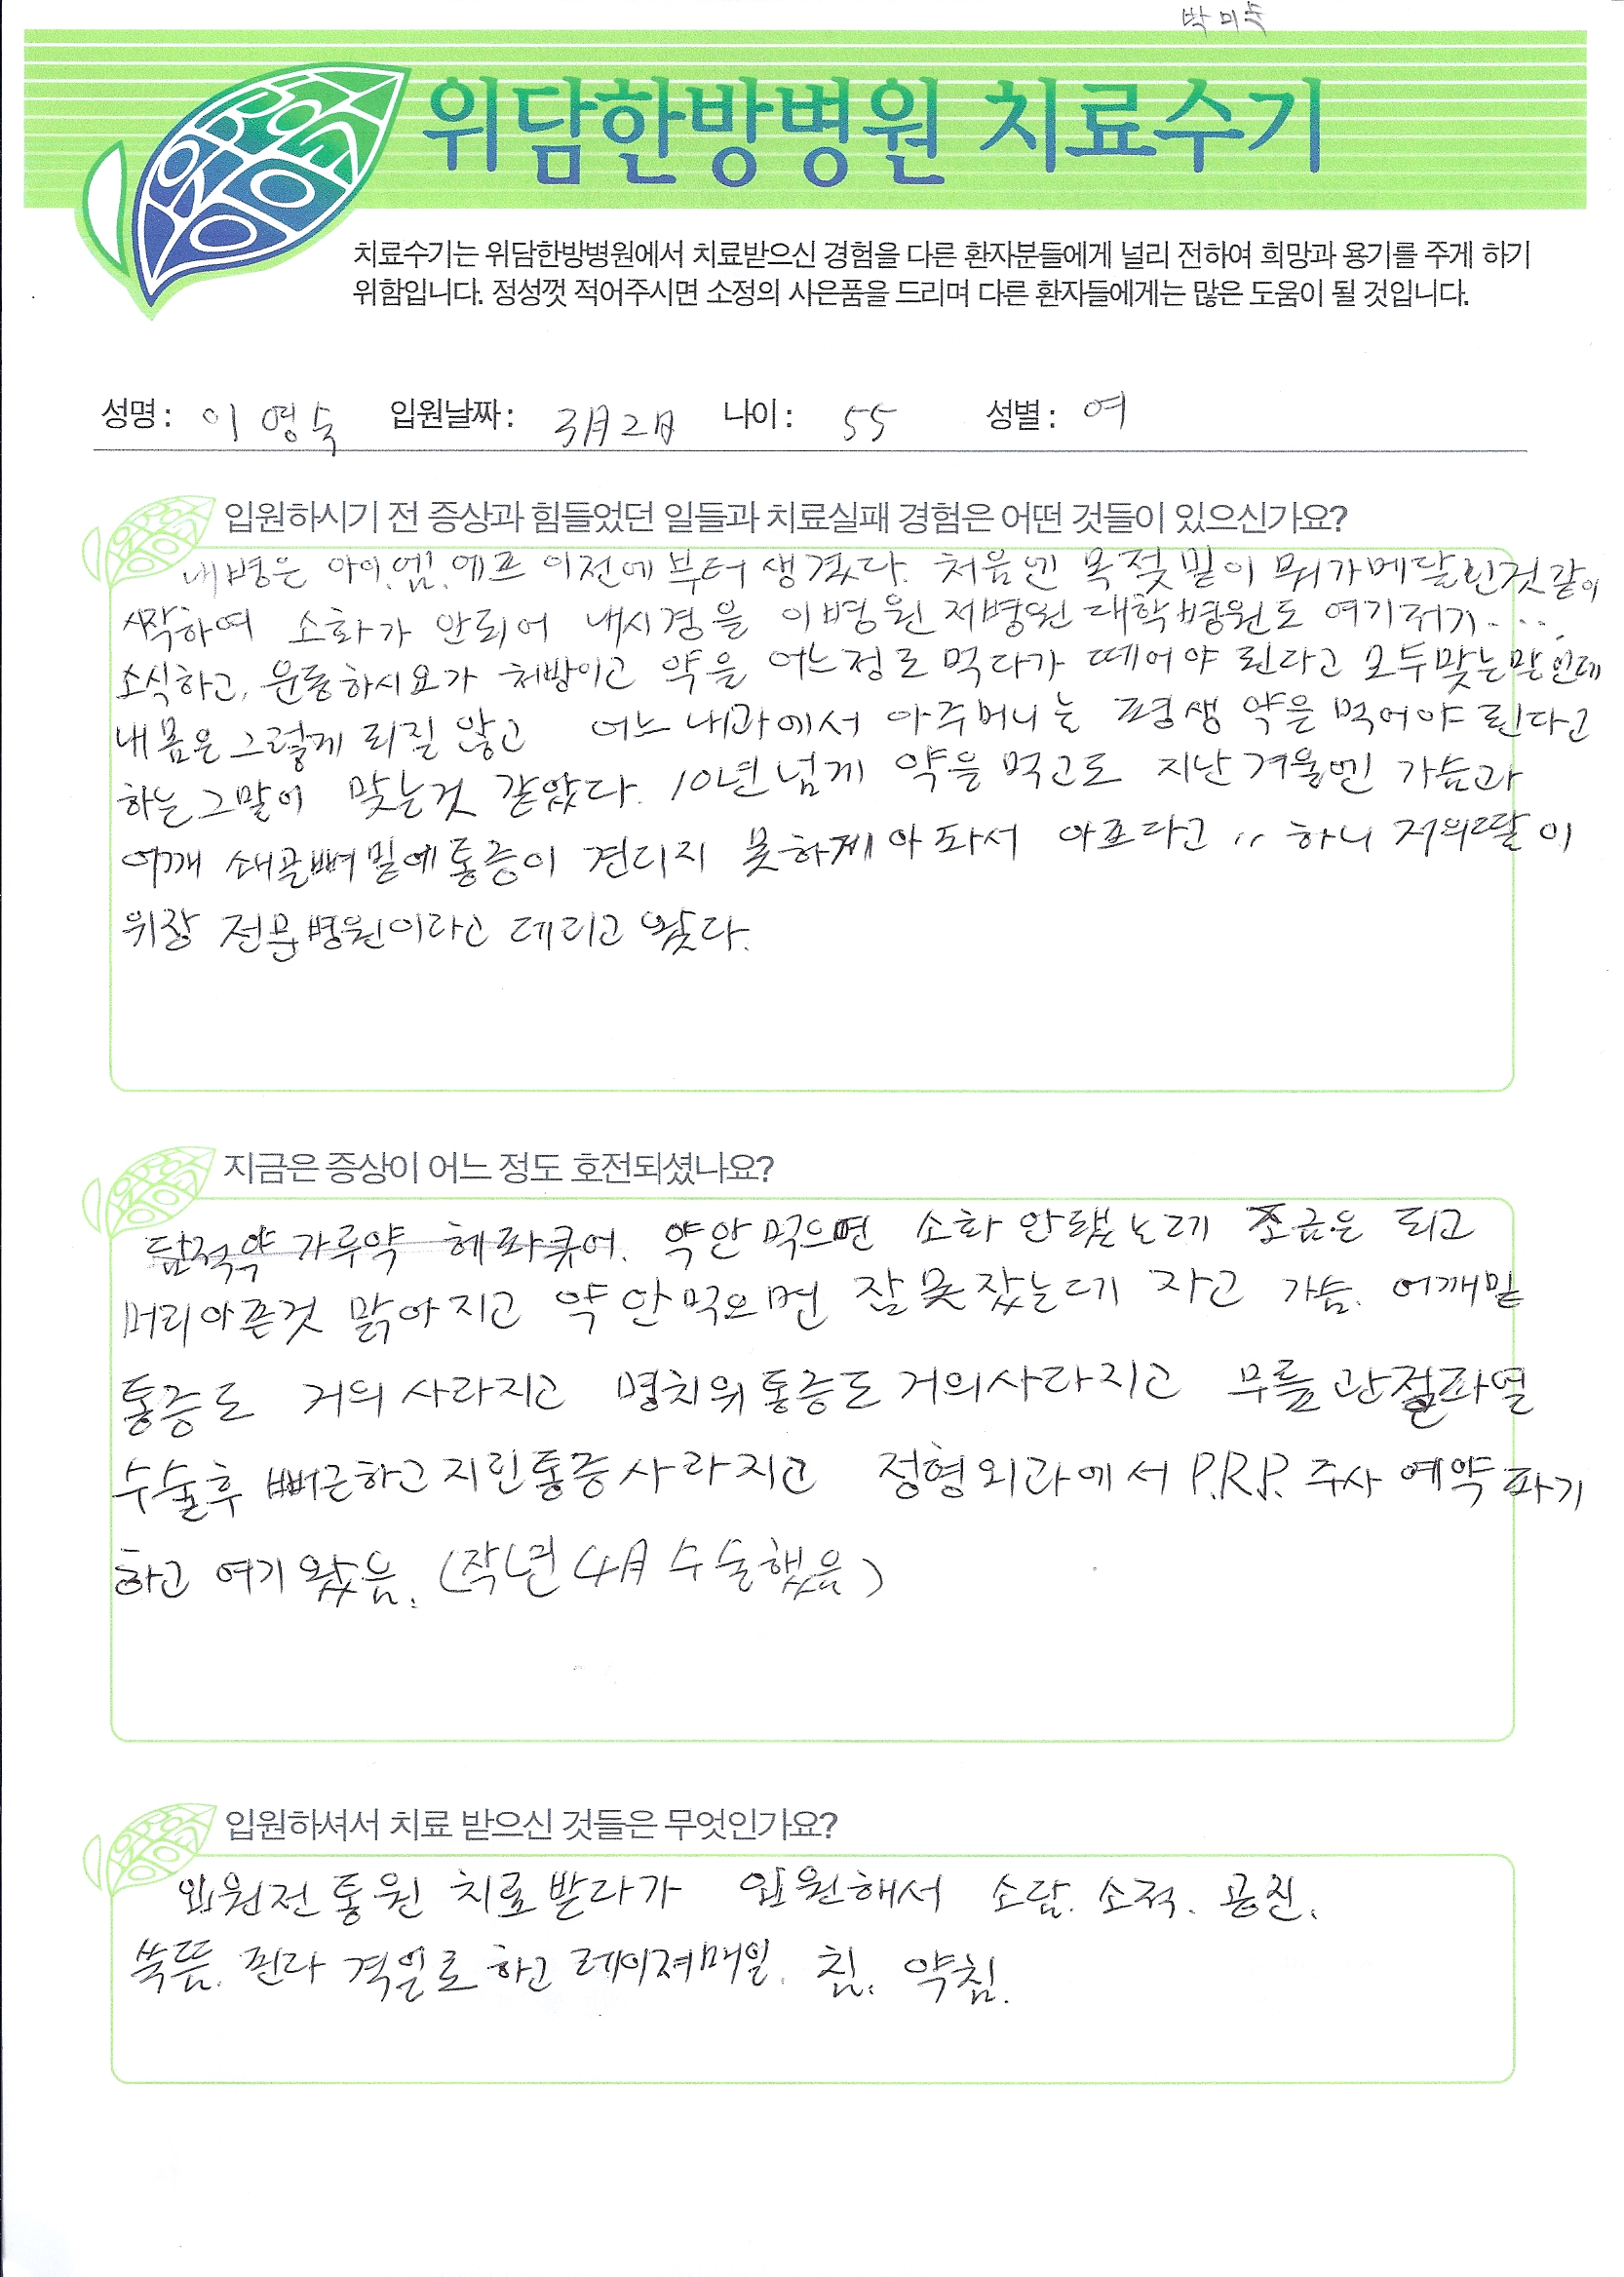 박미숙
위담한방병원 치료수기
치료수기는 위담한방병원에서 치료받으신 경험을 다른 환자분들에게 널리 전하여 희망과 용기를 주게 하기
위함입니다. 정성껏 적어주시면 소정의 사은품을 드리며 다른 환자들에게는 많은 도움이 될 것입니다.
성명 : 이영숙 입원날짜 : 3月2日 나이 : 55 성별 : 여
입원하시기 전 증상과 힘들었던 일들과 치료실패 경험은 어떤 것들이 있으신가요?
내병은 아이.엠.에프 이전에부터 생겼다. 처음엔 목젖밑이 뭐가메달린것같이
시작하여 소화가 안되어 내시경을 이병원 저병원 대학병원도 여기저기....
소식하고, 운동하시요가 처방이고 약을 어느정도 먹다가 떼어야 된다고 모두맞는말인데
내몸은 그렇게 되질 않고 어느내과에서 아주머니는 평생 약을 먹어야 된다고
하는 그말이 맞는것 같았다. 10년넘게 약을 먹고도 지난겨울엔 가슴과
어깨 쇄골뼈밑에통증이 견디지 못하게아파서 아프다고,, 하니 저의딸이
위장 전문병원이라고 데리고 왔다.
지금은 증상이 어느 정도 호전되셨나요?
담적약 가루약 헤파큐어. 약안먹으면 소화안됐는데 조금은 되고
머리아픈것 맑아지고 약안먹으면 잘못잤는데 자고 가슴. 어깨밑
통증도 거의사라지고 명치위통증도거의사라지고 무릎관절파열
수술후 뻐근하고지린통증사라지고 정형외과에서 P.R.P. 주사 예약파기
하고 여기왔음. (작년 4月 수술했음)
입원하셔서 치료 받으신 것들은 무엇인가요?
입원전통원 치료받다가 입원해서 소담. 소적. 공진.
쑥뜸. 핀라 격일로 하고 레이져매일. 침. 약침.